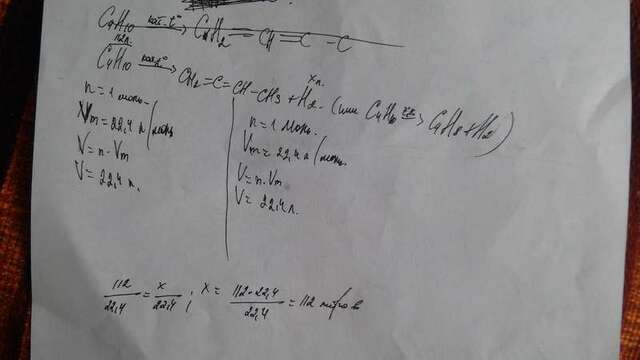 C4H10 кат. t° → CH2 = CH = C - C
112л.
C4H10 кат. t° → CH2=C=CH-CH3 + H2 - (или C4H10 → C4H8 + H2)
x л.
n = 1 моль.
Vm = 22,4 л/моль
V = n · Vm
V = 22,4 л.
n = 1 моль.
Vm = 22,4 л/моль
V = n · Vm
V = 22,4 л.
112/22,4 = x/22,4 ; x = 112·22,4/22,4 = 112 литров